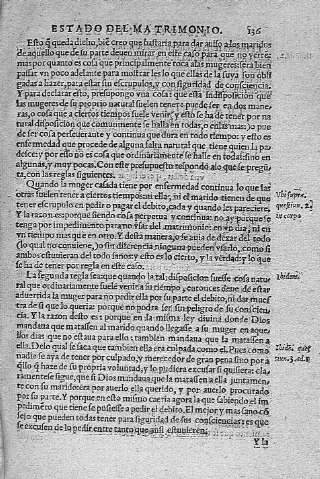 ESTADO DEL MATRIMONIO. 136
Esto q̃ queda dicho, biẽ creo que bastaria para dar auiso a los maridos
de aquello que de su parte deuen mirar en este caso para que no yerrẽ:
mas por quanto es cosa que principalmente toca a las mugeres sera bien
passar vn poco adelante para mostrar les lo que ellas de la suya son obli
gadas a hazer, para estar sin escrupulos, y con seguridad de consciencia.
Y para declarar esto, presupongo vna cosa: que esta indisposicion que
las mugeres de su proprio natural suelen tener: puede ser en dos mane-
ras, o cosa que a ciertos tiempos suele venir, y esto se ha de tener por na
tural disposicion que comunmente se halla en todas, o en las mas: o pue
de ser cosa perseuerante y continua que dura en todo tiempo: y esto es
enfermedad que procede de alguna falta natural que tiene quien la pa
desce: y por esso no es cosa que ordinariamente se halle en todas sino en
algunas, y muy pocas. Con este presupuesto respondo a lo que se pregũ
ta, con las reglas siguientes.
Quando la muger casada tiene por enfermedad continua lo que las
otras suelen tener a ciertos tiempos: ni ella, ni el marido tienen de que
tener escrupulo en pedir o pagar el debito, cada y quando les pareciere.
Y la razon es: porque siendo cosa perpetua y continua: no ay porque se
tenga por impedimento para no vsar del matrimonio: en vn dia, ni en
vn tiempo mas que en otro. Y desta manera, o se auia de dexar del todo
(lo qual no conuiene,) o sin diferencia ninguna pueden vsarlo, como si
ambos estuuieran del todo sanos: y esto es lo cierto, y la verdad y lo que
se ha de tener por regla en este caso.
La segunda regla sea: que quando la tal disposicion fuesse cosa natu-
ral que ordinariamente suele venir a su tiempo, entonces deue de estar
aduertida la muger para no pedir ella por su parte el debito, ni dar mues
tra de si que lo quiere: porque no podra ser sin peligro de su conscien-
cia. Y la razon desto es: porque en la misma ley diuina donde Dios
mandaua que matassen al marido quando llegasse a su muger en aque-
llos dias que no estaua para ello: tambien mandaua que la matassen a
ella. Delo qual se saca que tambien ella era culpada como el. Pues como
nadie se aya de tener por culpado, y merecedor de gran pena sino por a
q̃llo q̃ haze de su propria voluntad, y lo pudiera escusar si quisiera: cla
ramente se sigue, que si Dios mandaua que la matassen a ella juntamen-
te con su marido: era por auerlo ella querido, y por auerlo procurado
por su parte. Y porque en esto mismo caeria agora la que sabiendo el im
pedimẽto que tiene se pusiesse a pedir el debito. El mejor y mas sano cõ
sejo que pueden todas tener para seguridad de sus consciencias es que
se escusen de lo pedir entre tanto que ansi estuuieren.
Y la
Vbi supra,
in corpo
Ibidem.